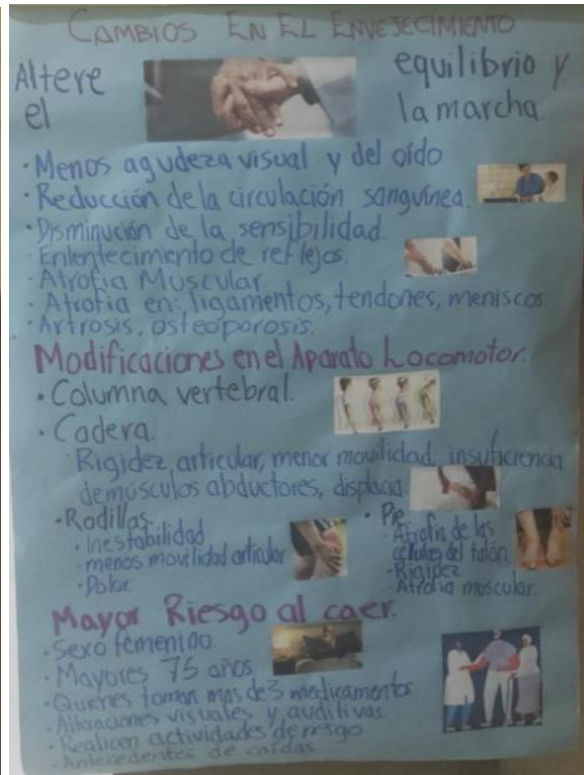 CAMBIOS EN EL ENVEJECIMIENTO
Altere el equilibrio y la marcha.
· Menos agudeza visual y del oído
· Reducción de la circulación sanguínea.
· Disminución de la sensibilidad.
· Enlentecimiento de reflejos.
· Atrofia Muscular.
· Atrofia en: ligamentos, tendones, meniscos.
· Artrosis, osteoporosis.
Modificaciones en el Aparato Locomotor.
· Columna vertebral.
· Cadera.
Rigidez, articular, menor movilidad, insuficiencia
de músculos abductores, displacia.
· Rodillas
· Inestabilidad
· menos movilidad articular
· Dolor.
· Pie
- Atrofia de las
células del talón
- Rigidez
- Atrofia muscular.
Mayor Riesgo al caer.
· Sexo femenino.
· Mayores 75 años.
· Quienes toman mas de 3 medicamentos
· Alteraciones visuales y auditivas
· Realicen actividades de riesgo
· Antecedentes de caídas